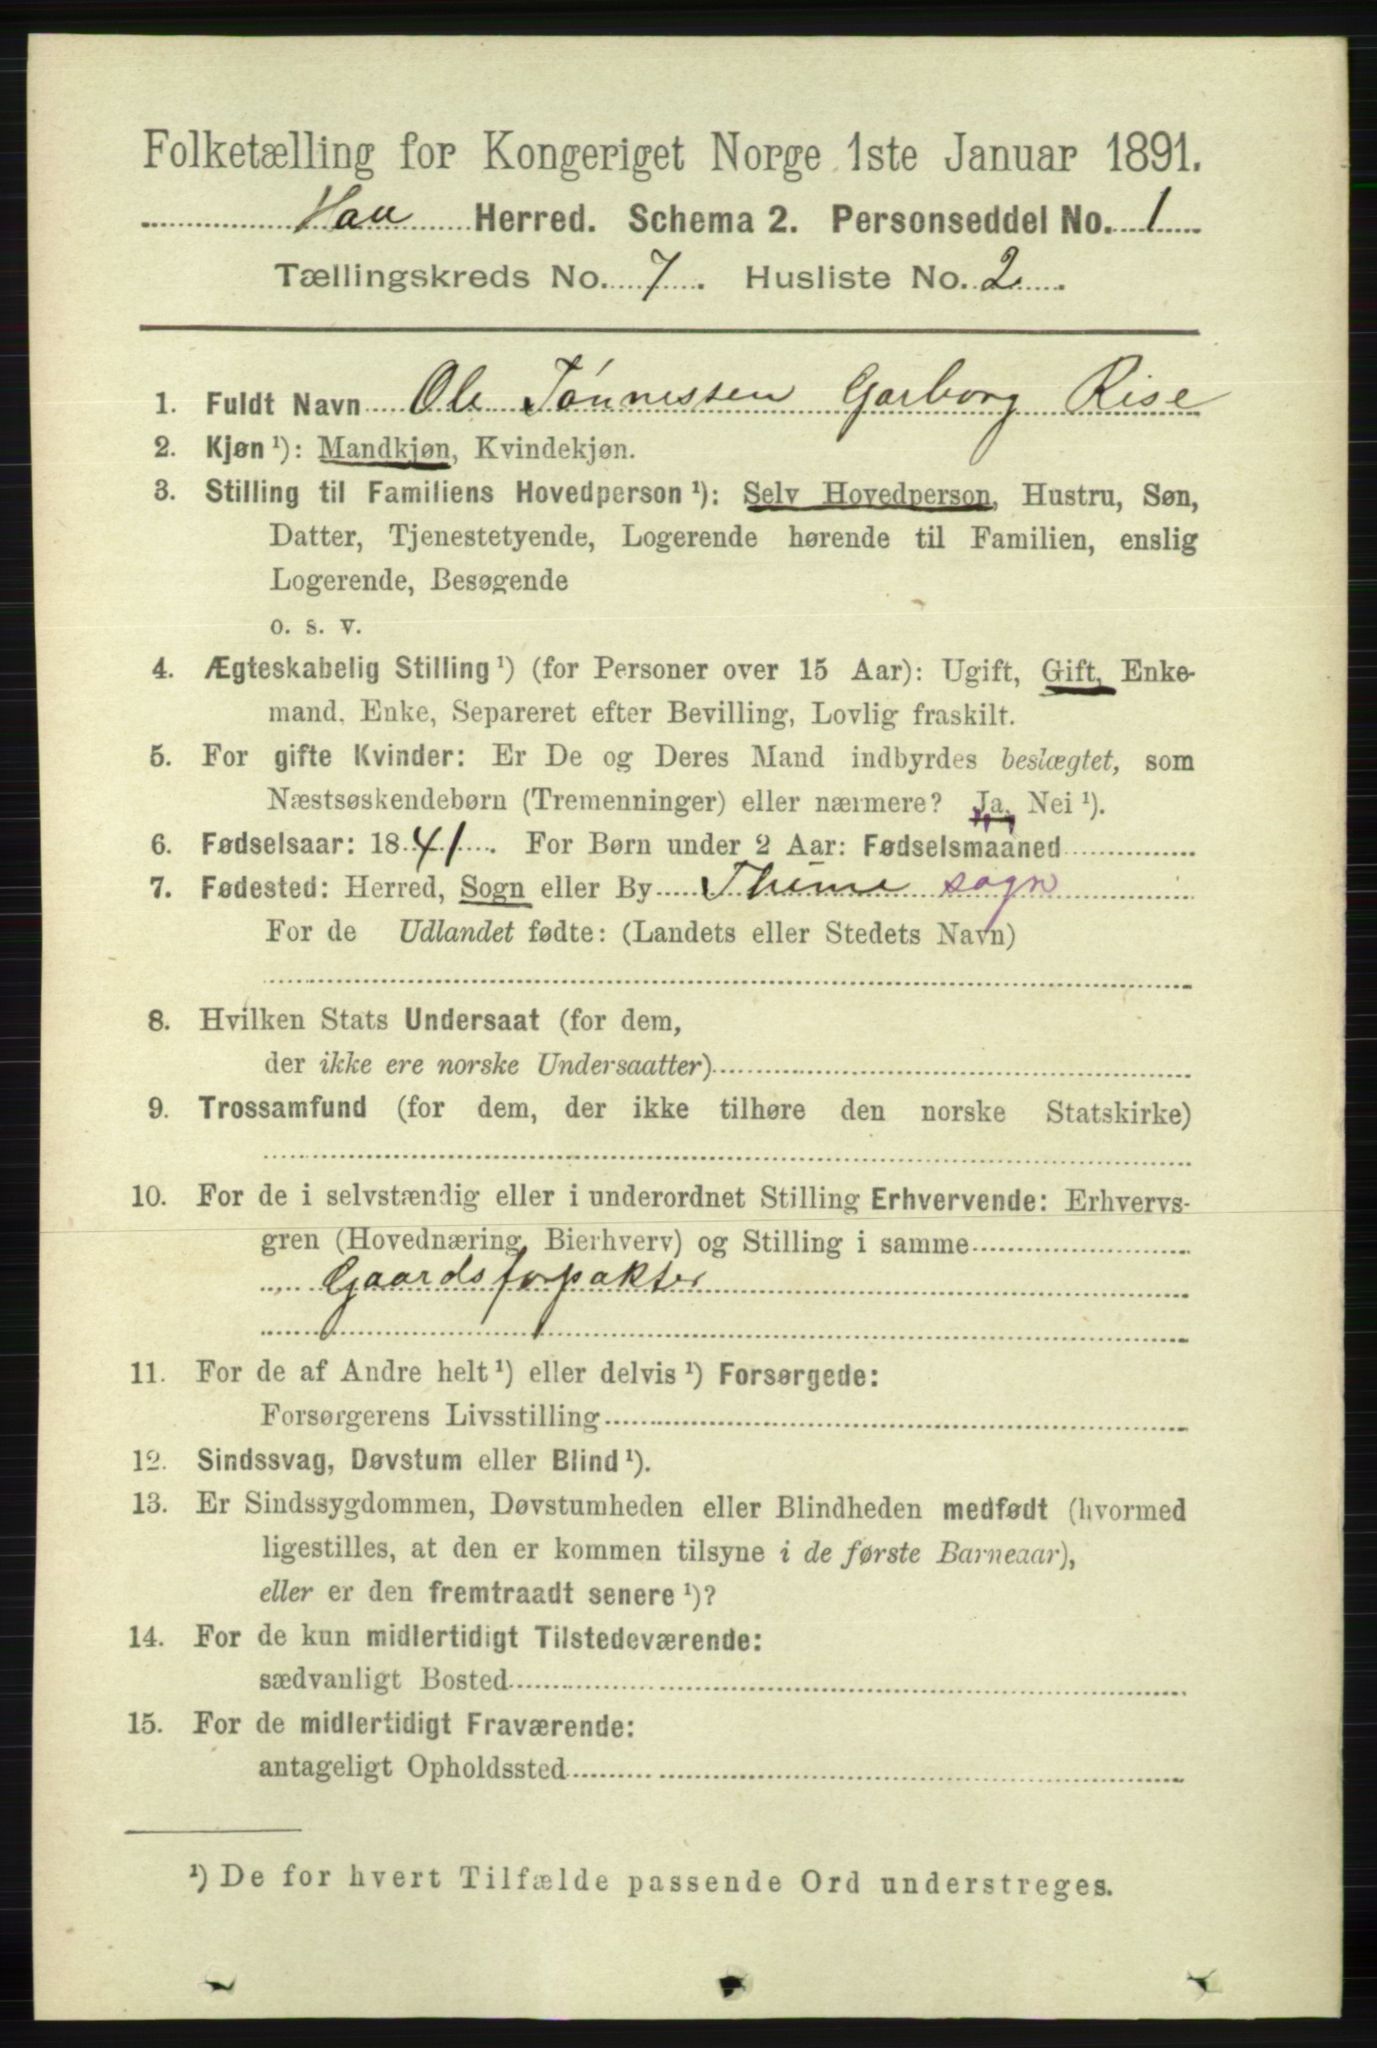 Folketælling for Kongeriget Norge 1ste Januar 1891.
Haa Herred. Schema 2. Personseddel No. 1
Tællingskreds No. 7. Husliste No. 2.
1. Fuldt Navn Ole Tønnessen Garborg Rise
2. Kjøn ¹): Mandkjøn, Kvindekjøn.
3. Stilling til Familiens Hovedperson ¹): Selv Hovedperson, Hustru, Søn,
Datter, Tjenestetyende, Logerende hørende til Familien, enslig
Logerende, Besøgende
o. s. v.
4. Ægteskabelig Stilling ¹) (for Personer over 15 Aar): Ugift, Gift, Enke-
mand, Enke, Separeret efter Bevilling, Lovlig fraskilt.
5. For gifte Kvinder: Er De og Deres Mand indbyrdes beslægtet, som
Næstsøskendebørn (Tremenninger) eller nærmere? Ja, Nei ¹).
6. Fødselsaar: 1841. For Børn under 2 Aar: Fødselsmaaned
7. Fødested: Herred, Sogn eller By Thime sogn
For de Udlandet fødte: (Landets eller Stedets Navn)
8. Hvilken Stats Undersaat (for dem,
der ikke ere norske Undersaatter)
9. Trossamfund (for dem, der ikke tilhøre den norske Statskirke)
10. For de i selvstændig eller i underordnet Stilling Erhvervende: Erhvervs-
gren (Hovednæring, Bierhverv) og Stilling i samme
Gaardsforpakter
11. For de af Andre helt ¹) eller delvis ¹) Forsørgede:
Forsørgerens Livsstilling
12. Sindssvag, Døvstum eller Blind ¹).
13. Er Sindssygdommen, Døvstumheden eller Blindheden medfødt (hvormed
ligestilles, at den er kommen tilsyne i de første Barneaar),
eller er den fremtraadt senere ¹)?
14. For de kun midlertidigt Tilstedeværende:
sædvanligt Bosted
15. For de midlertidigt Fraværende:
antageligt Opholdssted
¹) De for hvert Tilfælde passende Ord understreges.